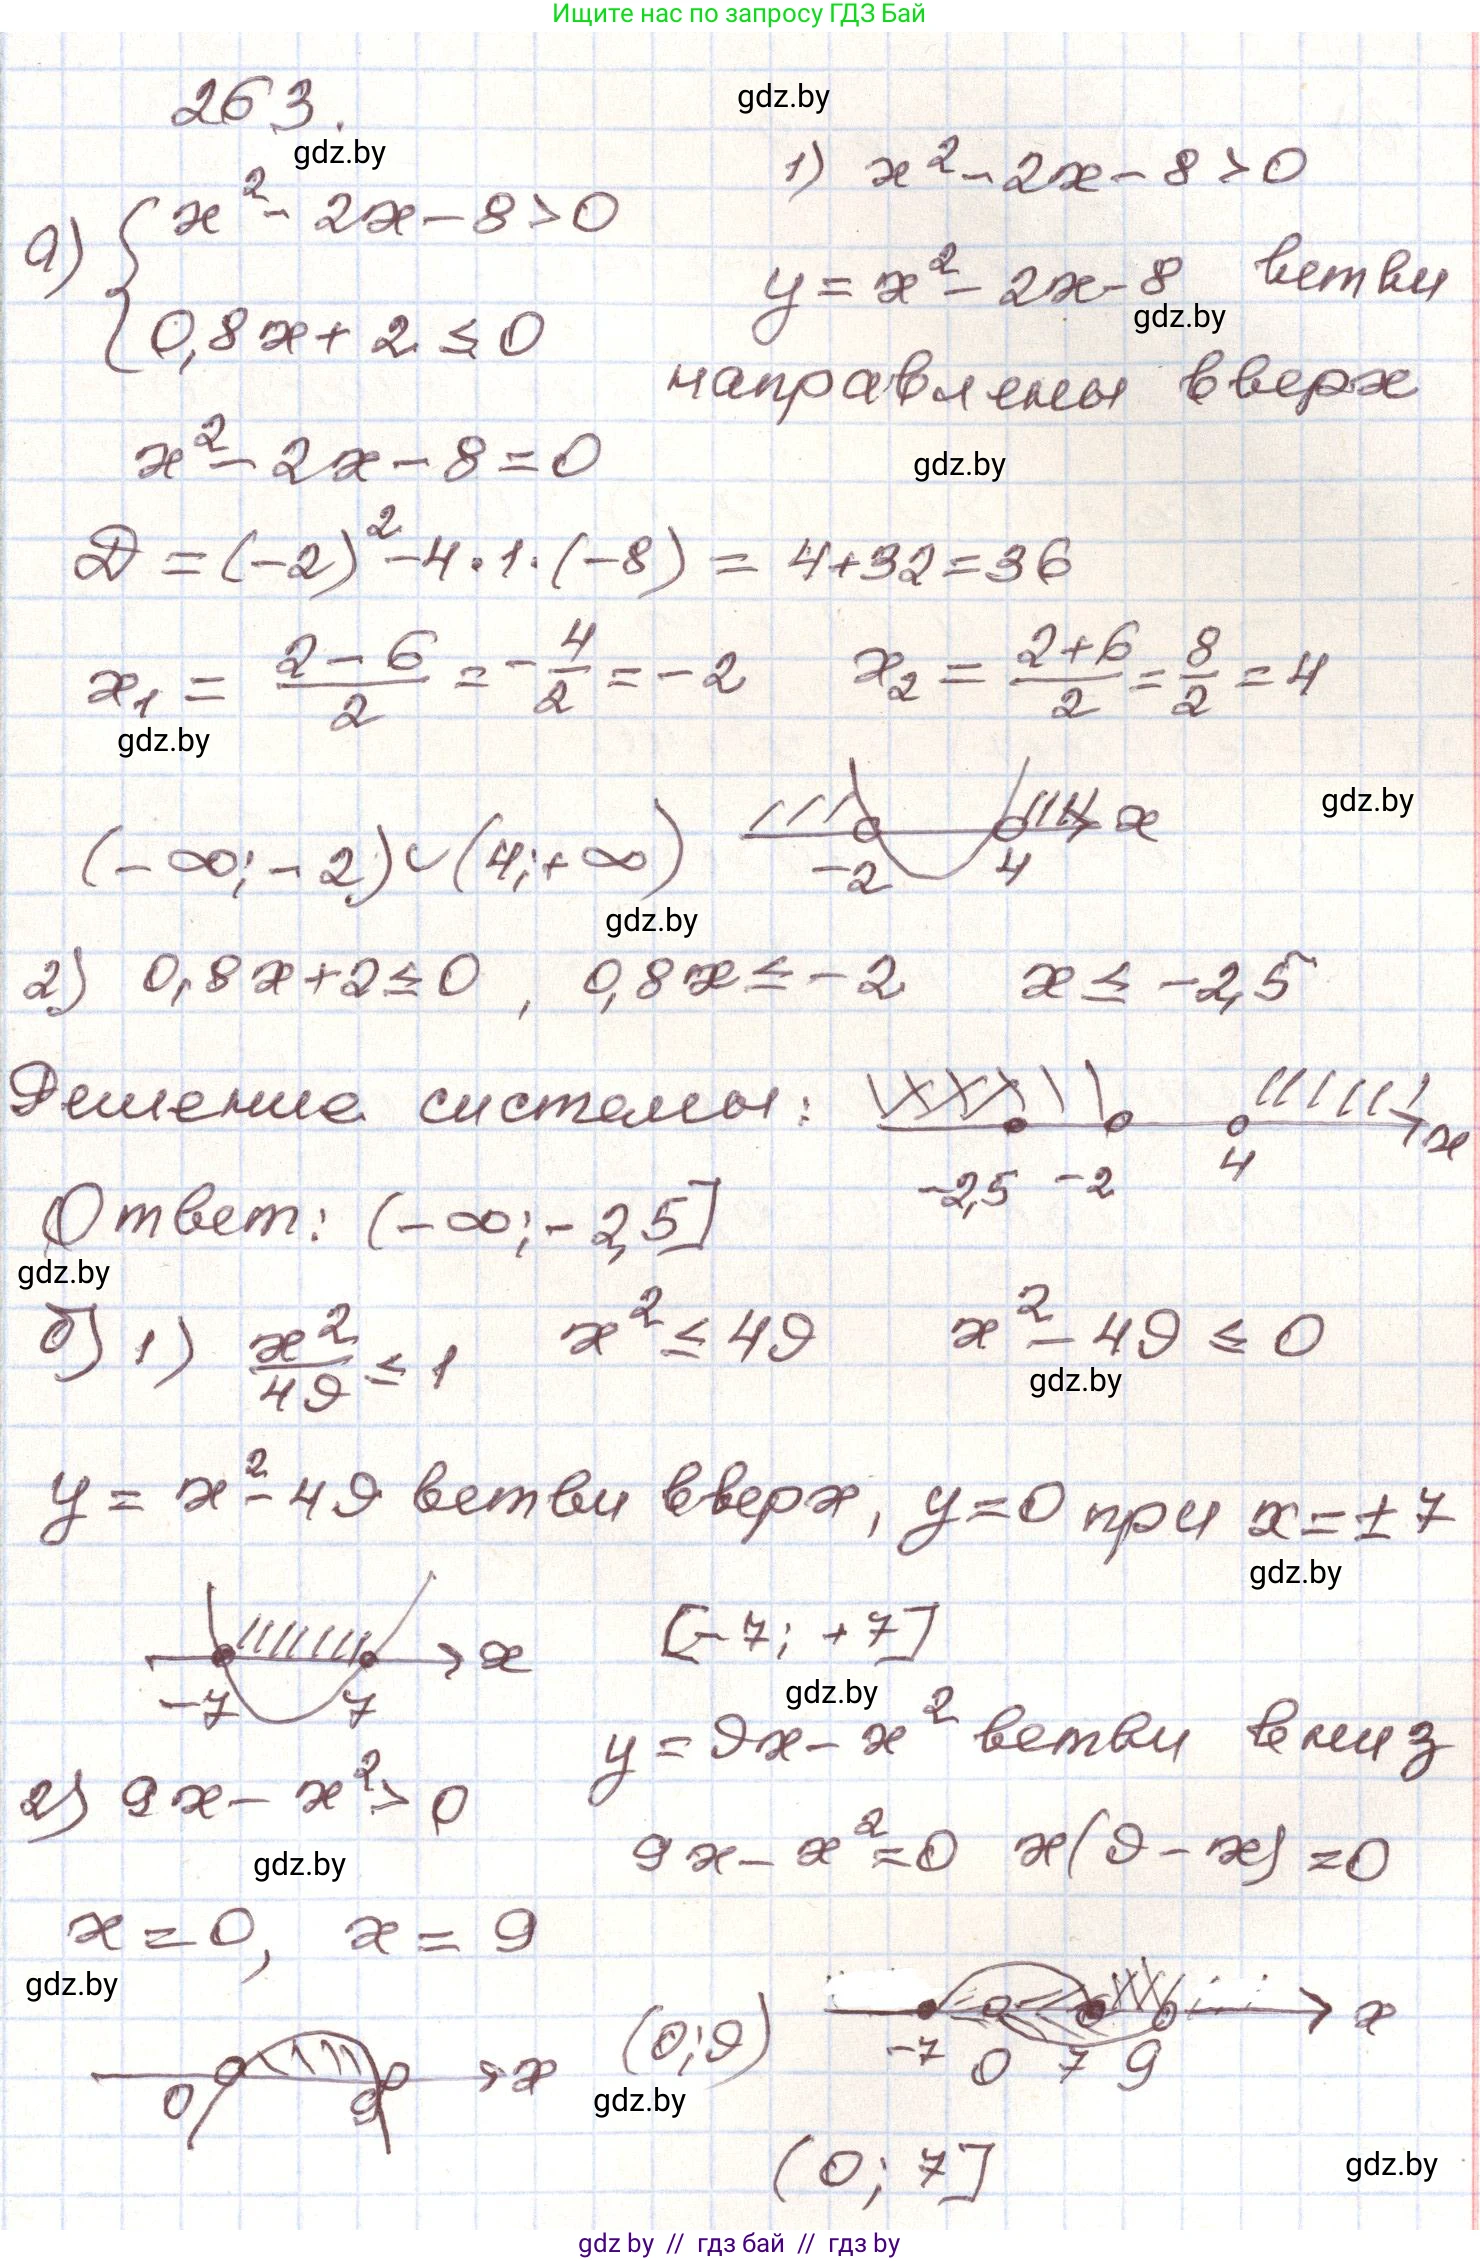 Ищите нас по запросу ГДЗ Бай
263.
gdz.by
gdz.by
а) { x² - 2x - 8 > 0
0,8x + 2 ≤ 0
1) x² - 2x - 8 > 0
y = x² - 2x - 8 ветви
gdz.by
направлены вверх
x² - 2x - 8 = 0
gdz.by
D = (-2)² - 4·1·(-8) = 4 + 32 = 36
x₁ = (2 - 6)/2 = -4/2 = -2 x₂ = (2 + 6)/2 = 8/2 = 4
gdz.by
(-∞; -2) ∪ (4; +∞)
-2 4 x
gdz.by
gdz.by
2) 0,8x + 2 ≤ 0, 0,8x ≤ -2 x ≤ -2,5
Решение системы:
-2,5 -2 4 x
Ответ: (-∞; -2,5]
gdz.by
б) 1) x²/49 ≤ 1 x² ≤ 49 x² - 49 ≤ 0
gdz.by
y = x² - 49 ветви вверх, y = 0 при x = ±7
gdz.by
-7 7 x
[-7; +7]
gdz.by
2) 9x - x² > 0
y = 9x - x² ветви вниз
gdz.by
9x - x² = 0 x(9 - x) = 0
x = 0, x = 9
gdz.by
0 9 x
(0; 9)
gdz.by
-7 0 7 9 x
(0; 7]
gdz.by
gdz.by // гдз бай // gdz by